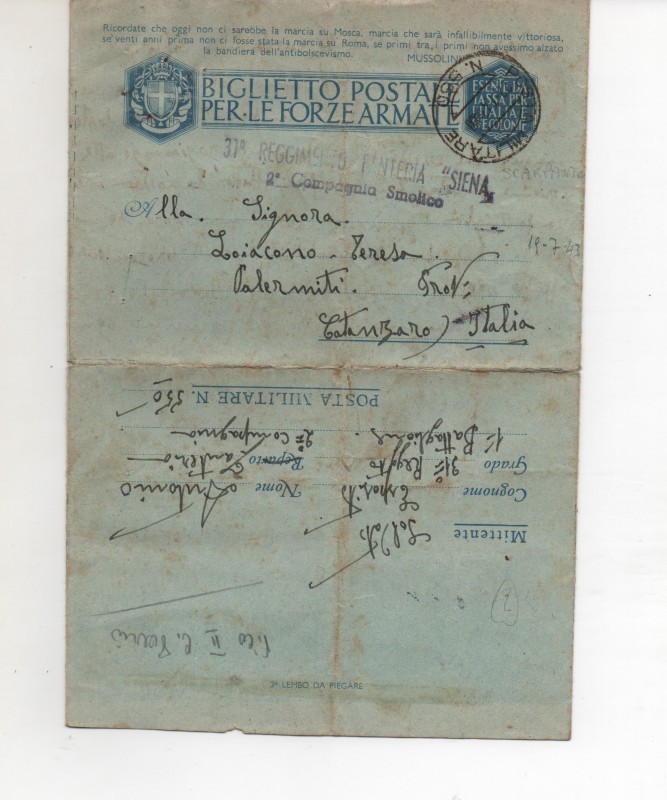 Ricordate che oggi non ci sarebbe la marcia su Mosca, marcia che sarà infallibilmente vittoriosa,
se venti anni prima non ci fosse stata la marcia su Roma, se primi tra i primi non avessimo alzato
la bandiera dell'antibolscevismo. MUSSOLINI
BIGLIETTO POSTALE
PER LE FORZE ARMATE
ESENTE DA
TASSA PER
L'ITALIA
E COLONIE
MILITARE N. 550
REGGIMENTO FANTERIA "SIENA"
2° Compagnia
Alla. Signora.
Loiacono. Teresa.
Palermiti. Prov:
Catanzaro) Italia
19-7-43
POSTA MILITARE N. 550
2ª Compagnia
1° Battaglione.
Reparto Fanteria
Grado 31° Regg
Nome Antonio
Cognome Esposito
Mittente
2° LEMBO DA PIEGARE